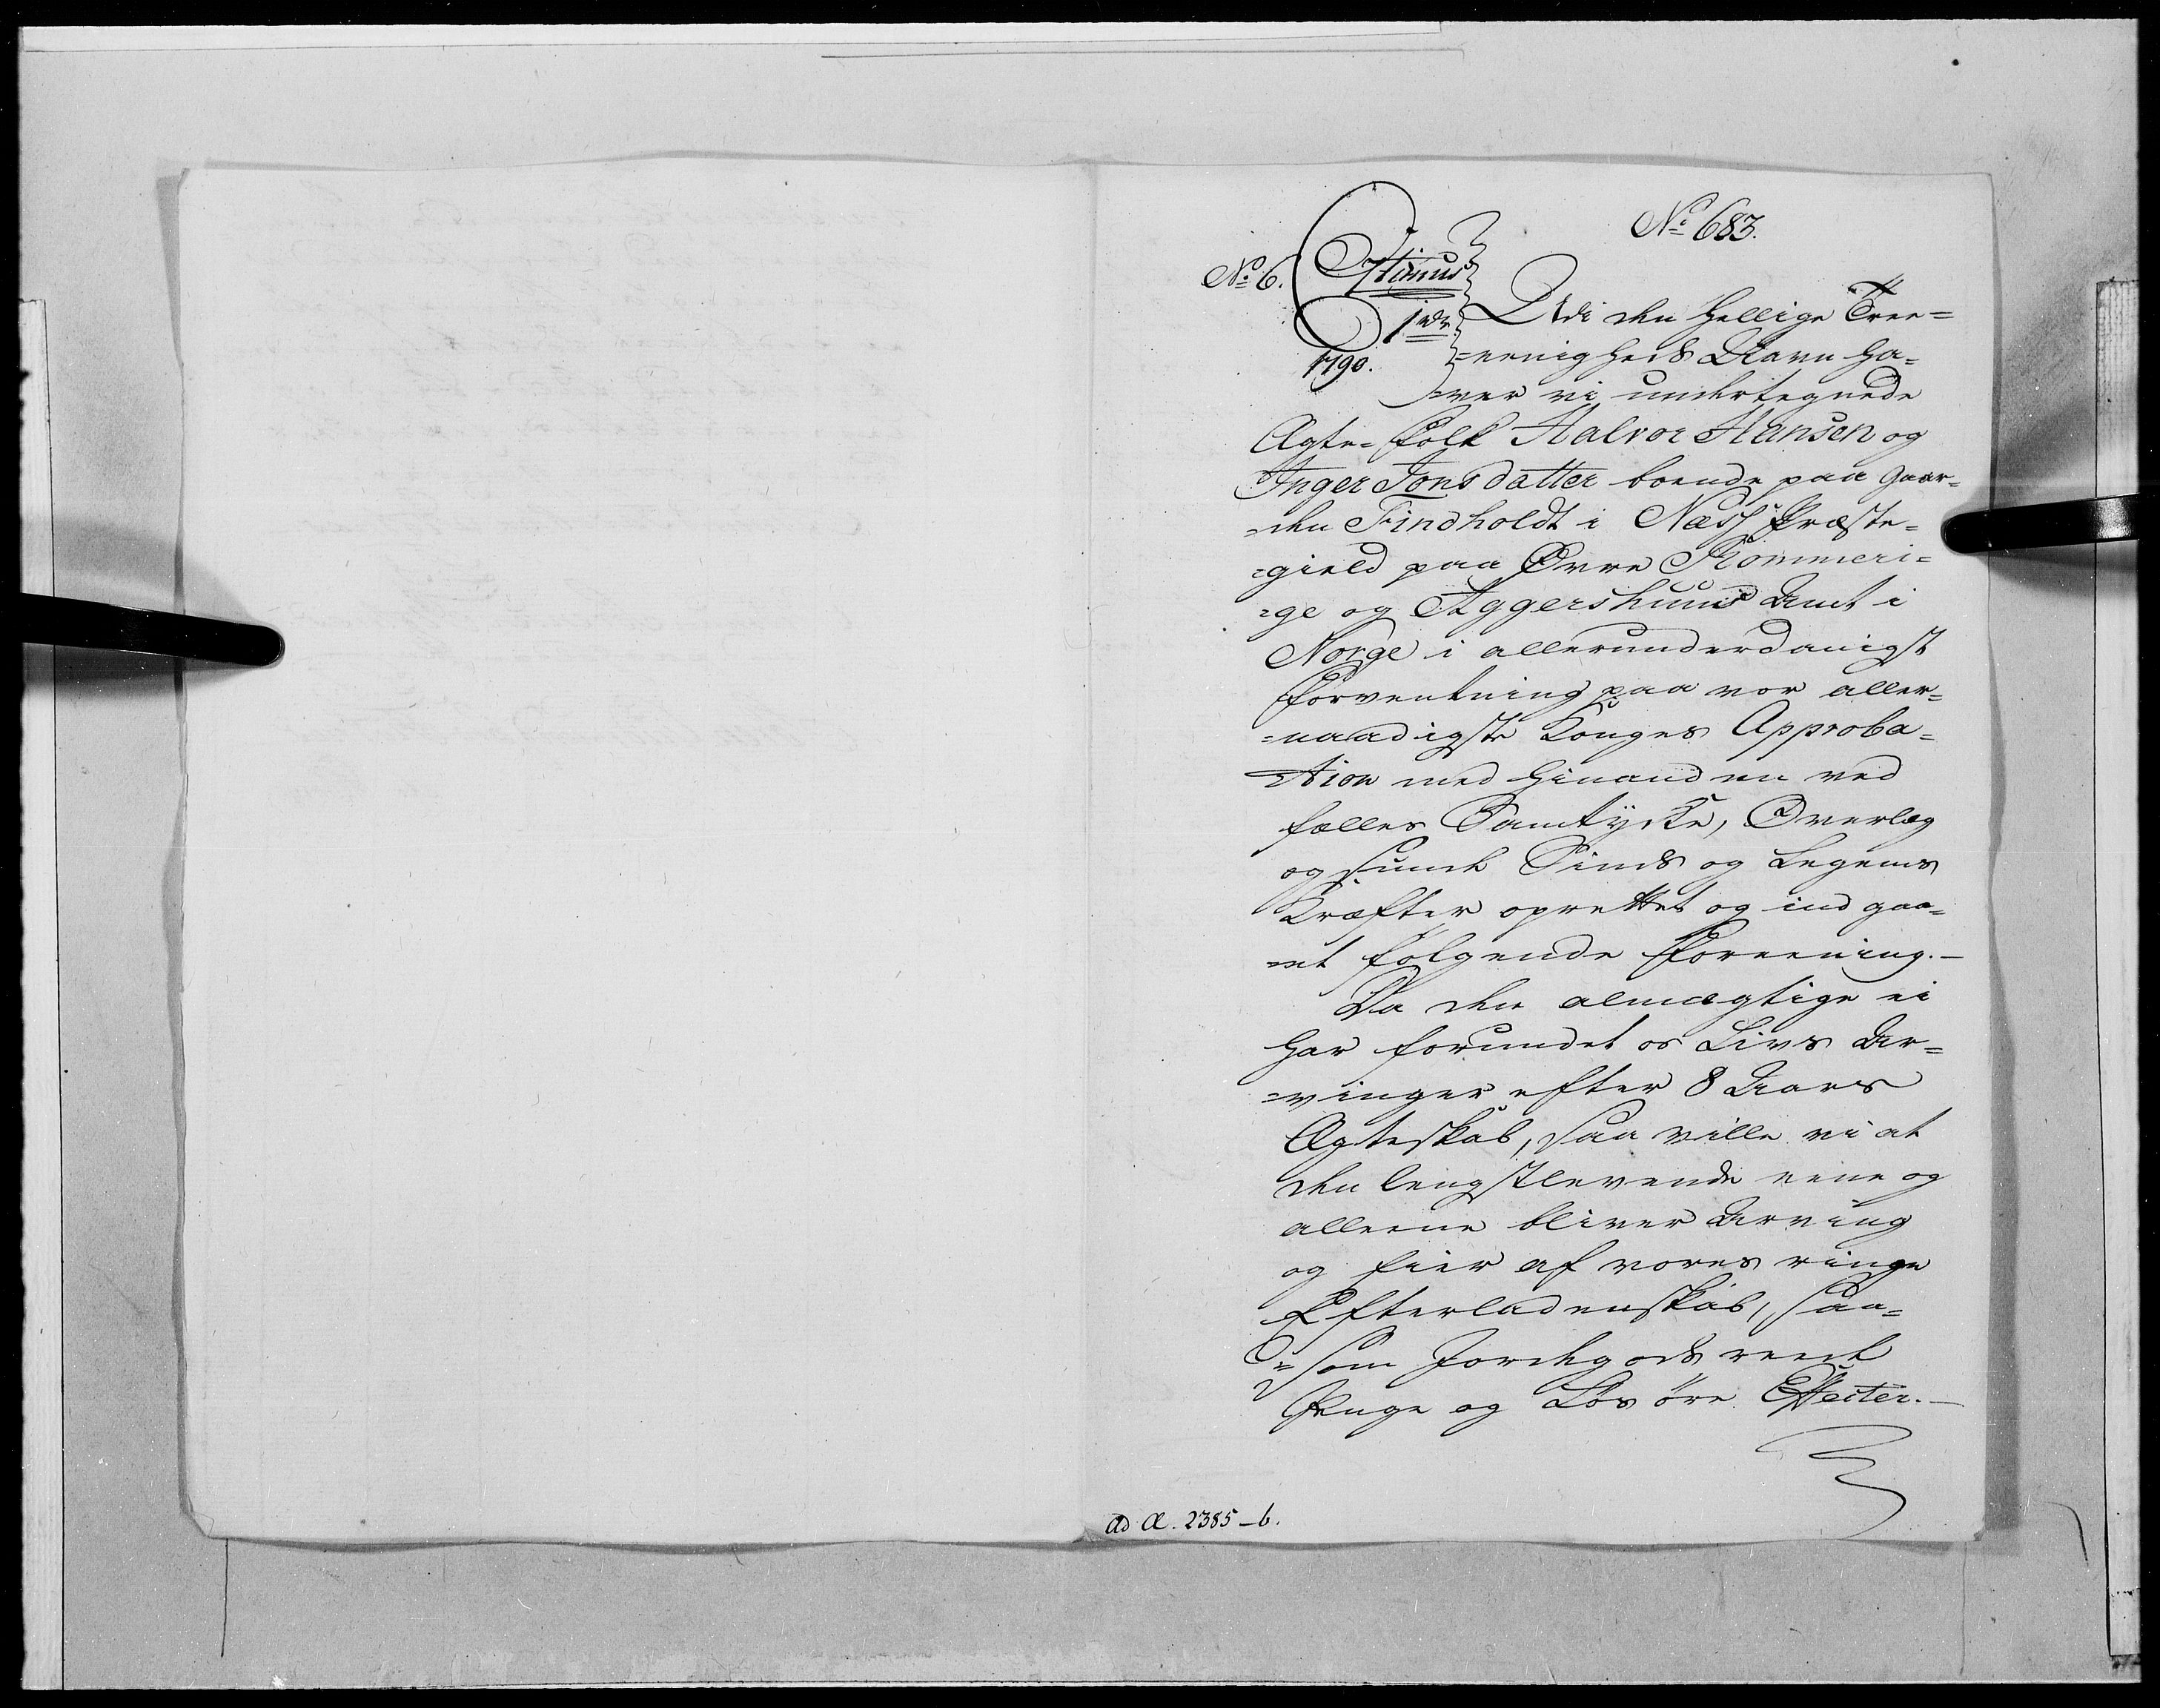 No 683.
No 6.
1 rdr.
1790.
Udi den Hellige Tree=
=eenigheds Navn ha=
=ver vi undertegnede
Ægte=folk Halvor Hansen og
Inger Jonsdatter boende paa Gaar=
=den Findholdt i Næss Præste=
=gield paa Øvre Rommeri=
=ge og Aggershuus Amt i
Norge i allerunderdanigst
forventning paa vor aller=
=naadigste Konges Approba=
=tion med hinanden ved
fælles Samtykke, Overlæg
og sunde Sinds og Legems
Kræfter oprettet og ind gaa=
=et følgende foreening.—
Da den almægtige ei
har forundet os Livs Ar=
=vinger efter 8 Aars
Ægteskab, saa ville vi at
den lengstlevende eene og
alleene bliver Arving
og Eier af vores ringe
Efterladenskab, saa=
=som Jordegods reede
Penge og Løsøre Effecter.—
ad Æ. 2385-b.